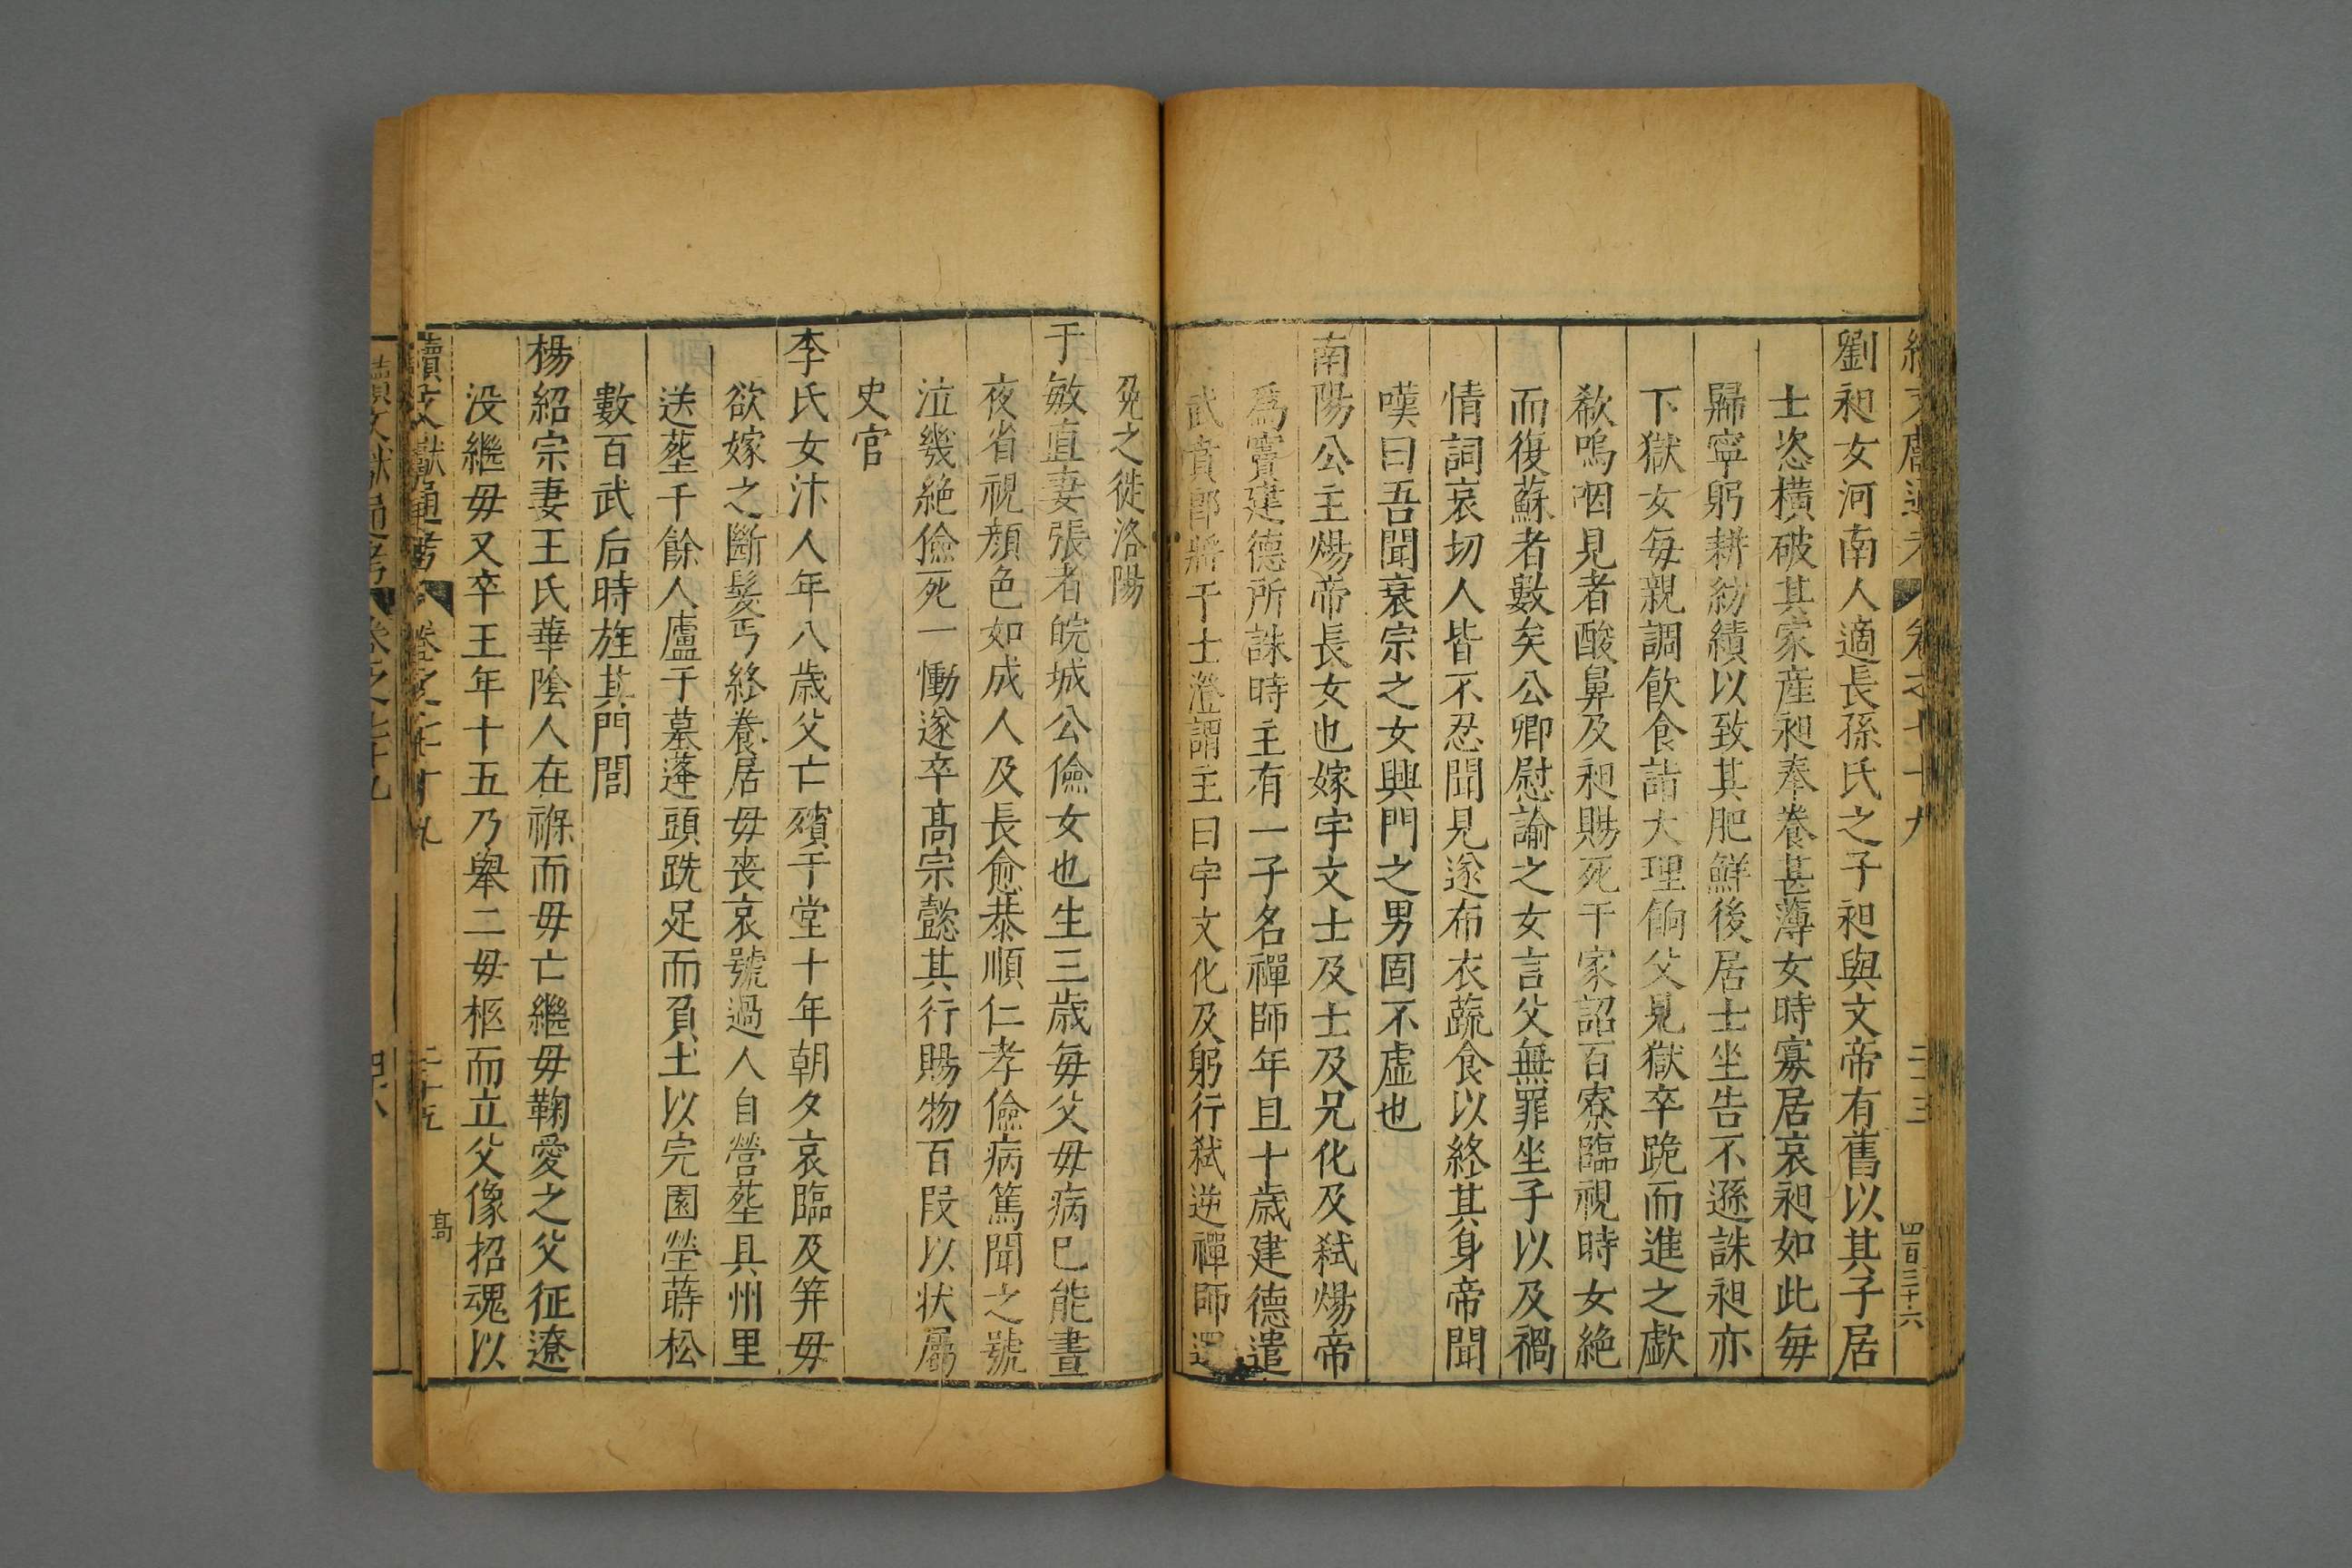 續文獻通考 卷之七十九 二十三 四百三十六
劉昶女河南人適長孫氏之子昶與文帝有舊以其子居
士恣橫破其家産昶奉養甚薄女時寡居哀昶如此每
歸寧躬耕紡績以致其肥鮮後居士坐告不遜誅昶亦
下獄女每親調飲食詣大理餉父見獄卒跪而進之歔
欷嗚咽見者酸鼻及昶賜死于家詔百寮臨視時女絶
而復蘇者數矣公卿慰諭之女言父無罪坐子以及禍
情詞哀切人皆不忍聞見遂布衣蔬食以終其身帝聞
嘆曰吾聞衰宗之女興門之男固不虛也
南陽公主煬帝長女也嫁宇文士及士及兄化及弑煬帝
爲竇建德所誅時主有一子名禪師年且十歲建德遣
武賁郎將于士澄謂主曰宇文化及躬行弑逆禪師還
免之徙洛陽
于敏直妻張者皖城公儉女也生三歲每父母病已能晝
夜省視顔色如成人及長愈恭順仁孝儉病篤聞之號
泣幾絶儉死一慟遂卒高宗懿其行賜物百段以状屬
史官
李氏女汴人年八歲父亡殯于堂十年朝夕哀臨及笄母
欲嫁之斷髮丐終養居母喪哀號過人自營塟具州里
送塟千餘人廬于墓蓬頭跣足而負土以完園塋蒔松
數百武后時旌其門閭
楊紹宗妻王氏華陰人在褓而母亡繼母鞠愛之父征遼
没繼母又卒王年十五乃舉二母柩而立父像招魂以
續文獻通考 卷之七十九 二十五 高
續文獻通考 卷之七十九 四八